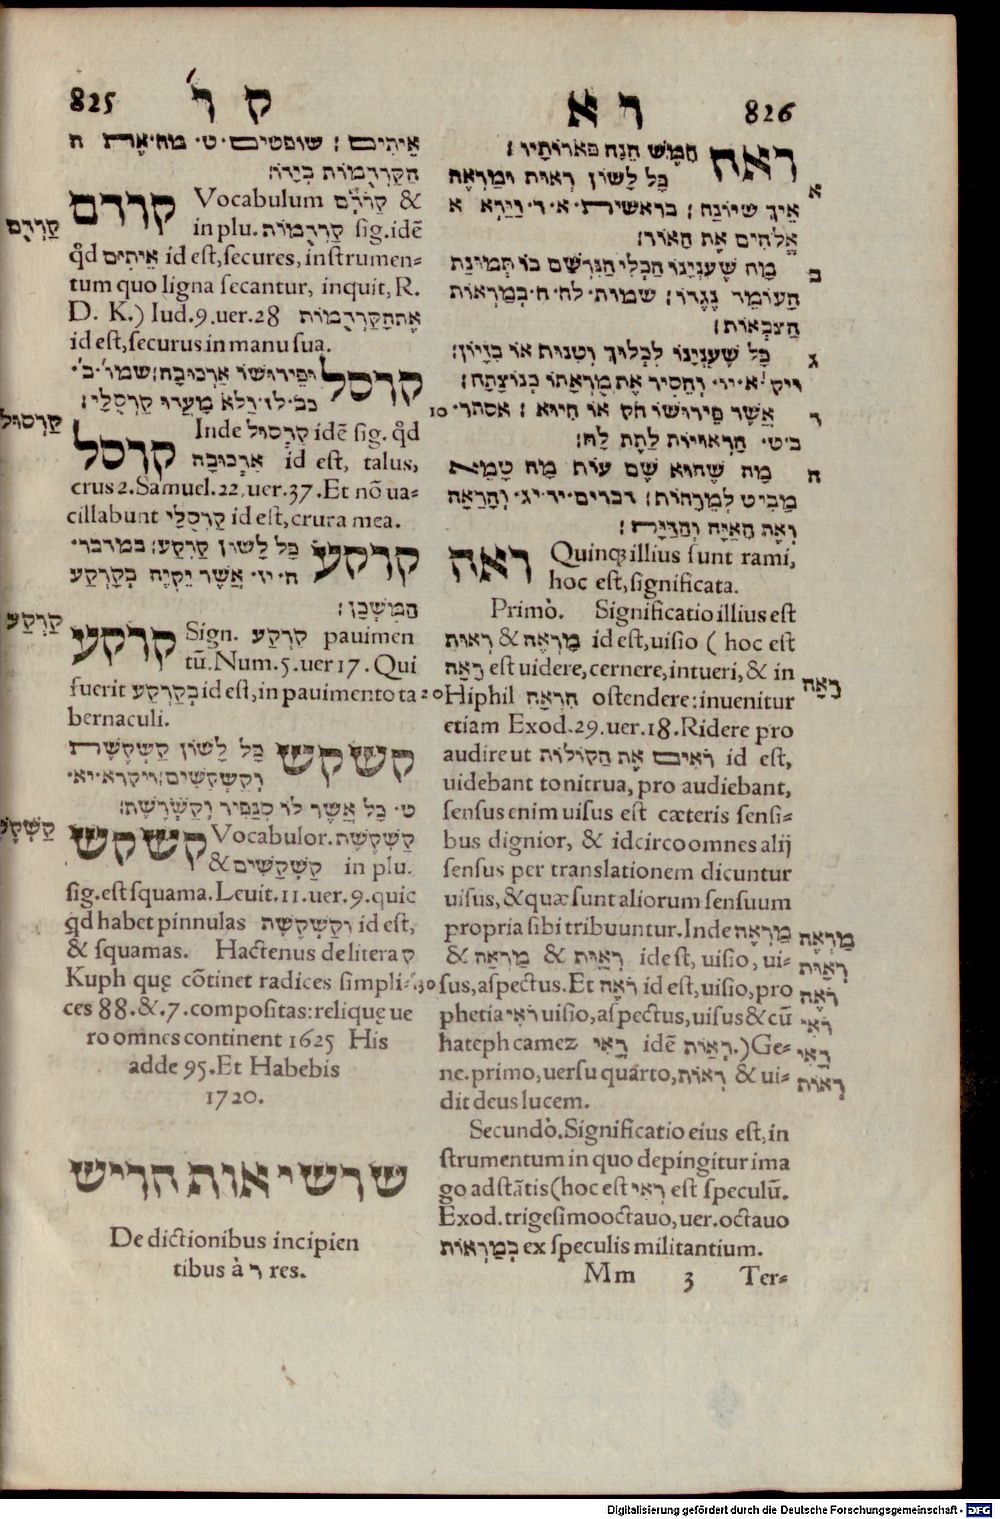 825 ק ר
אֵיתִים׃ שופטים· ט· מח·אֶת ה
הַקַּרְדֻּמוֹת בְּיָדוֹ׃
קרדם Vocabulum קַרְדֹּם &
קַרְדֻם in plu. קַרְדֻּמוֹת sig. idē
qđ אֵיתִים id est, secures, instrumen-
tum quo ligna secantur, inquit, R.
D. K.) Iud. 9. uer. 28 אֶתהַקַּרְדֻּמוֹת
id est, securus in manu sua.
קרסל ופֵירושׁוֹ אַרְכּוּבָה׃ שמו·ב·
כב·לז·וְלֹא מָעֲדוּ קַרְסֻלָּי׃
קַרְסוּל
קרסל Inde קַרְסוּל idē sig. qđ
אַרְכּוּבָּה id est, talus,
crus 2. Samuel. 22. uer. 37. Et nō ua-
cillabunt קַרְסֻלַּי id est, crura mea.
קרקע כָּל לָשׁוֹן קַרְקַע׃ במדבר·
ה· יז· אֲשֶׁר יִהְיֶה בְּקַרְקַע
הַמִּשְׁכָּן׃
קַרְקַע
קרקע Sign. קַרְקַע pauimen
tū. Num. 5. uer 17. Qui
fuerit בְּקַרְקַע id est, in pauimento ta
bernaculi.
קשקש כָּל לָשׁוֹן קַשְׂקֶשֶׂת
וְקַשְׂקַשִּׂים׃ ויקרא·יא·
ט· כָּל אֲשֶׁר לוֹ סְנַפִּיר וְקַשְׂקֶשֶׂת׃
קשקש Vocabulor. קַשְׂקֶשֶׂת
& קַשְׂקַשִּׂים in plu.
sig. est squama. Leuit. 11. uer. 9. quic
qđ habet pinnulas וְקַשְׂקֶשֶׂת id est,
& squamas. Hactenus de litera ק
Kuph quę cōtinet radices simpli-
ces 88. &. 7. compositas: relique ue
ro omnes continent 1625 His
adde 95. Et Habebis
1720.
שרשי אות הריש
De dictionibus incipien
tibus à ר res.
ר א 826
ראה חֲמֵשׁ הֵנָּה פארותָיו׃
כָּל לָשׁוֹן רְאוּת וּמַרְאֶה א
אֵיךְ שיוֹנַח׃ בראשית· א· ד· וַיַּרְא א
אֱלֹהִים אֶת הָאוֹר׃
מַה שֶׁעִנְיָנוֹ הַכְּלִי הַנִּרְשָׁם בּוֹ תְּמוּנַת ב
הָעוֹמֵד נֶגְדּוֹ׃ שמות· לח· ח· בְּמַרְאוֹת
הַצֹּבְאוֹת׃
כָּל שֶׁעִנְיָנוֹ לִכְלוּךְ וְטִנּוּף אוֹ בִזָּיוֹן׃ ג
ויק·א·יו· וְהֵסִיר אֶת מֻרְאָתוֹ בְּנוֹצָתָהּ׃
10 אֲשֶׁר פֵּירושׁוֹ חֹק אוֹ חִיוּא׃ אסתר· ד
ב·ט· הָרְאוּיוֹת לָתֶת לָהּ׃
מַה שֶׁהוּא שֶׁם עוֹף מַה טָמֵא ה
מַבִּיט לְמֵרָחוֹק׃ דברים·יד·יג· וְהָרָאָה
וְאֶת הָאַיָּה וְהַדַּיָּה׃
ראה Quinqꝫ illius sunt rami,
hoc est, significata.
Primò. Significatio illius est
רְאוּת & מַרְאֶה id est, uisio ( hoc est
רָאָה est uidere, cernere, intueri, & in רָאָה
20 Hiphil הִרְאָה ostendere: inuenitur
etiam Exod. 29. uer. 18. Ridere pro
audire ut רֹאִים אֶת הַקּוֹלוֹת id est,
uidebant tonitrua, pro audiebant,
sensus enim uisus est cæteris sensi-
bus dignior, & idcirco omnes alij
sensus per translationem dicuntur
uisus, & quæ sunt aliorum sensuum
propria sibi tribuuntur. Inde מַרְאֶה מַרְאֶה
& מַרְאָה & רְאוּת id est, uisio, ui- רְאוּת
30 sus, aspectus. Et רֹאֶה id est, uisio, pro רֹאֶה
phetia רֹאִי uisio, aspectus, uisus & cū רֹאִי
hateph camez רֳאִי idē רְאוֹת.) Ge- רֳאִי
ne. primo, uersu quarto, רְאוֹת & ui- רְאוֹת
dit deus lucem.
Secundò. Significatio eius est, in
strumentum in quo depingitur ima
go adstātis (hoc est רְאִי est speculū.
Exod. trigesimooctauo, uer. octauo
בְּמַרְאוֹת ex speculis militantium.
Mm 3 Ter-
Digitalisierung gefördert durch die Deutsche Forschungsgemeinschaft - DFG